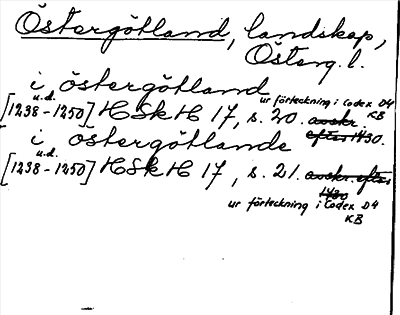 Östergötland, landskap,
Österg. l.
i östergötland
u.d.
[1238-1250] HSkH 17, s. 20. avskr. efter 1430.
ur förteckning i Codex D4 KB
i östergötlande
u.d.
[1238-1250] HSkH 17, s. 21. avskr. efter 1430
ur förteckning i Codex D4
KB